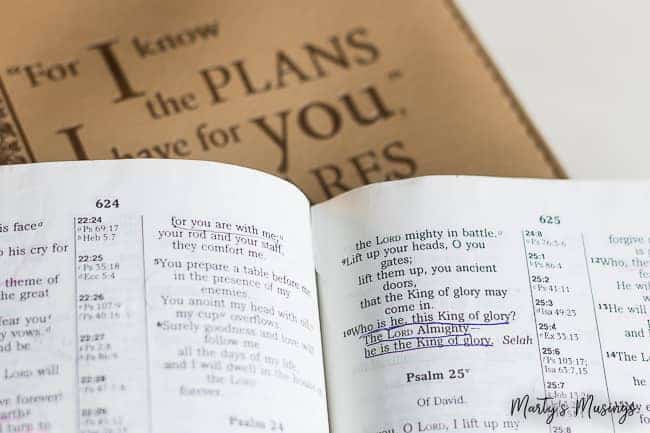 "For I know
the PLANS
I have for you,"
624
is face
his cry for
theme of
the great
fear you
y vows.
nd be.
LORD will
22:24
Ps 69:17
Heb 5:7
22:25
Ps 35:18
Ecc 5:4
22:26
Ps 107:9
22:27
Ps 2:8
Ps 86:9
22:28
22:29
for you are with me;
your rod and your staff,
they comfort me.
5 You prepare a table before me
in the presence of my
enemies.
You anoint my head with oil;
my cup overflows.
6 Surely goodness and love will
follow me
all the days of my life,
and I will dwell in the house of
the LORD
forever.
Psalm 24
625
the LORD mighty in battle.
9 Lift up your heads, O you
gates;
lift them up, you ancient
doors,
that the King of glory may
come in.
10 Who is he, this King of glory?
The LORD Almighty—
he is the King of glory. Selah
Psalm 25
Of David.
O LORD, I lift up my
24:8
Ps 76:3-6
25:1
Ps 86:4
25:2
25:3
Isa 49:23
25:4
Ex 33:13
25:6
Ps 103:17;
Isa 63:7,15
25:7
Job 13:26
forgive
is
12 Who, the
He will
13 He w
and
14 The L
He
Marty's Musings